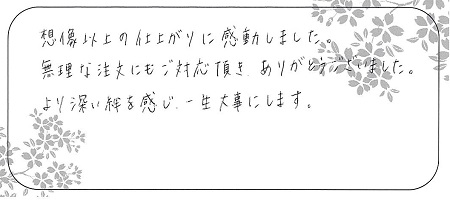 想像以上の仕上がりに感動しました。
無理な注文にもご対応頂き、ありがとうございました。
より深い絆を感じ、一生大事にします。